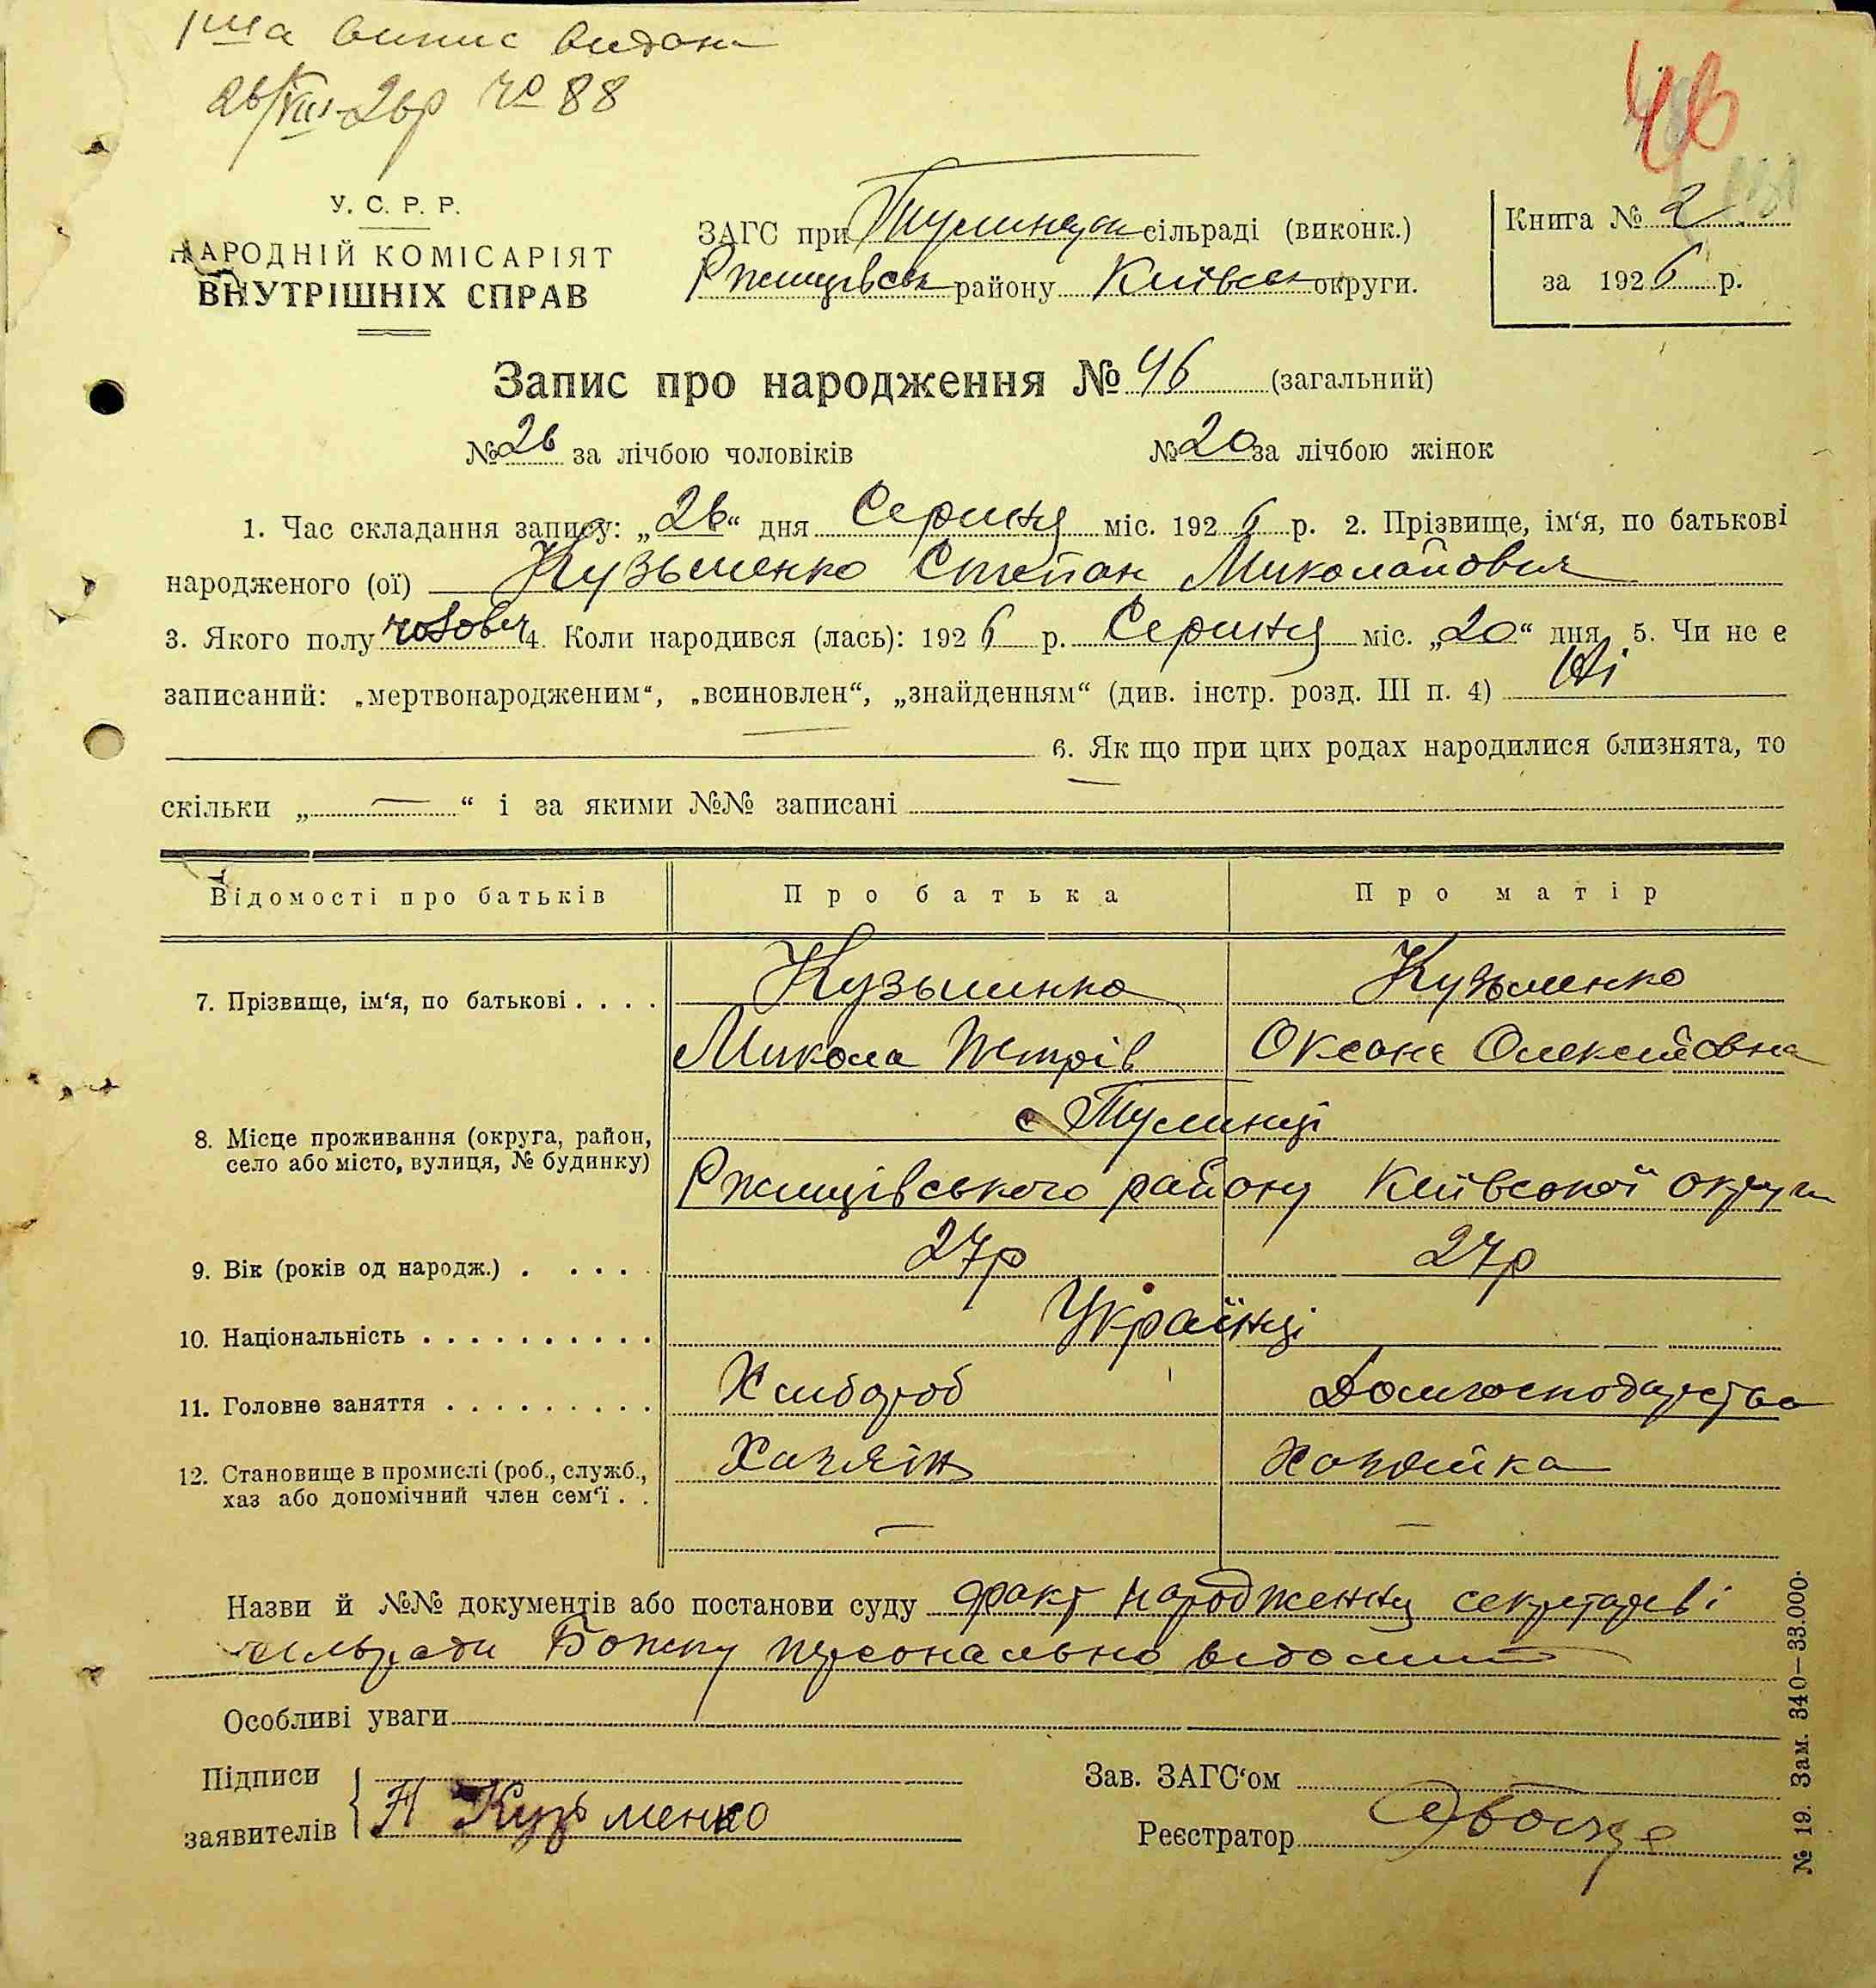 1ша випис видана
26/VIII-26р № 88
46
У. С. Р. Р.
НАРОДНІЙ КОМІСАРІЯТ
ВНУТРІШНІХ СПРАВ
ЗАГС при Тулинецьк сільраді (виконк.)
Ржищівськ району Київськ округи.
Книга № 2
за 1926 р.
Запис про народження № 46 (загальний)
№ 26 за лічбою чоловіків № 20 за лічбою жінок
1. Час складання запису: „26“ дня Серпня міс. 1926 р. 2. Прізвище, ім‘я, по батькові
народженого (ої) Кузьменко Степан Миколайович
3. Якого полу чолов 4. Коли народився (лась): 1926 р. Серпня міс. „20“ дня 5. Чи не є
записаний: „мертвонародженим“, „всиновлен“, „знайденням“ (див. інстр. розд. III п. 4) Ні
6. Як що при цих родах народилися близнята, то
скільки „—“ і за якими №№ записані —
Відомості про батьків Про батька Про матір
7. Прізвище, ім‘я, по батькові . . . . Кузьменко Кузьменко
Микола Петрів Оксана Олексієвна
8. Місце проживання (округа, район, с Тулинці
село або місто, вулиця, № будинку) Ржищівського району Київської округи
9. Вік (років од народж.) . . . . . 27р 27р
10. Національність . . . . . . . . . . Українці
11. Головне заняття . . . . . . . . . Хлібороб Домгосподарство
12. Становище в промислі (роб., служб., Хазяїн Хазяйка
хаз або допомічний член сем‘ї . . — —
Назви й №№ документів або постанови суду факт народження секретареві
сільради Божку персонально відомий
Особливі уваги
Підписи
заявителів Н Кузьменко
Зав. ЗАГС‘ом
Реєстратор
№ 19. Зам. 340—33.000.